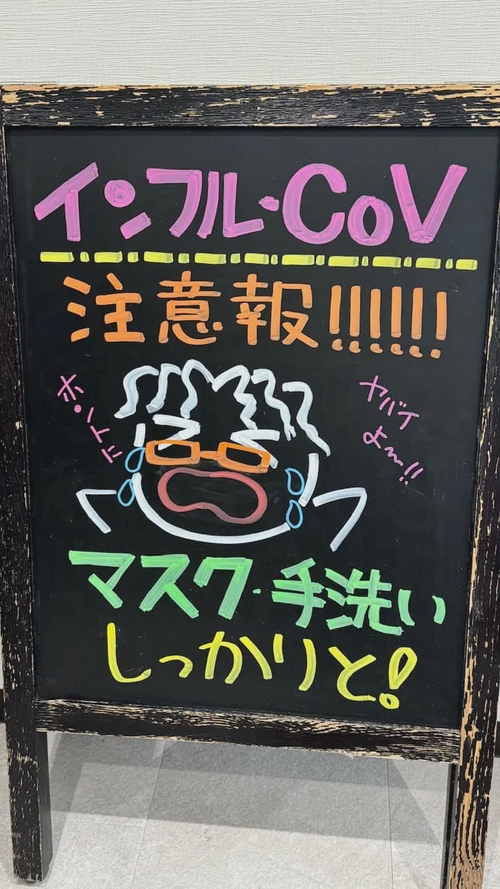 インフル・CoV
注意報!!!!!!
ホントに
ヤバイ
よ〜!!
マスク・手洗い
しっかりと!